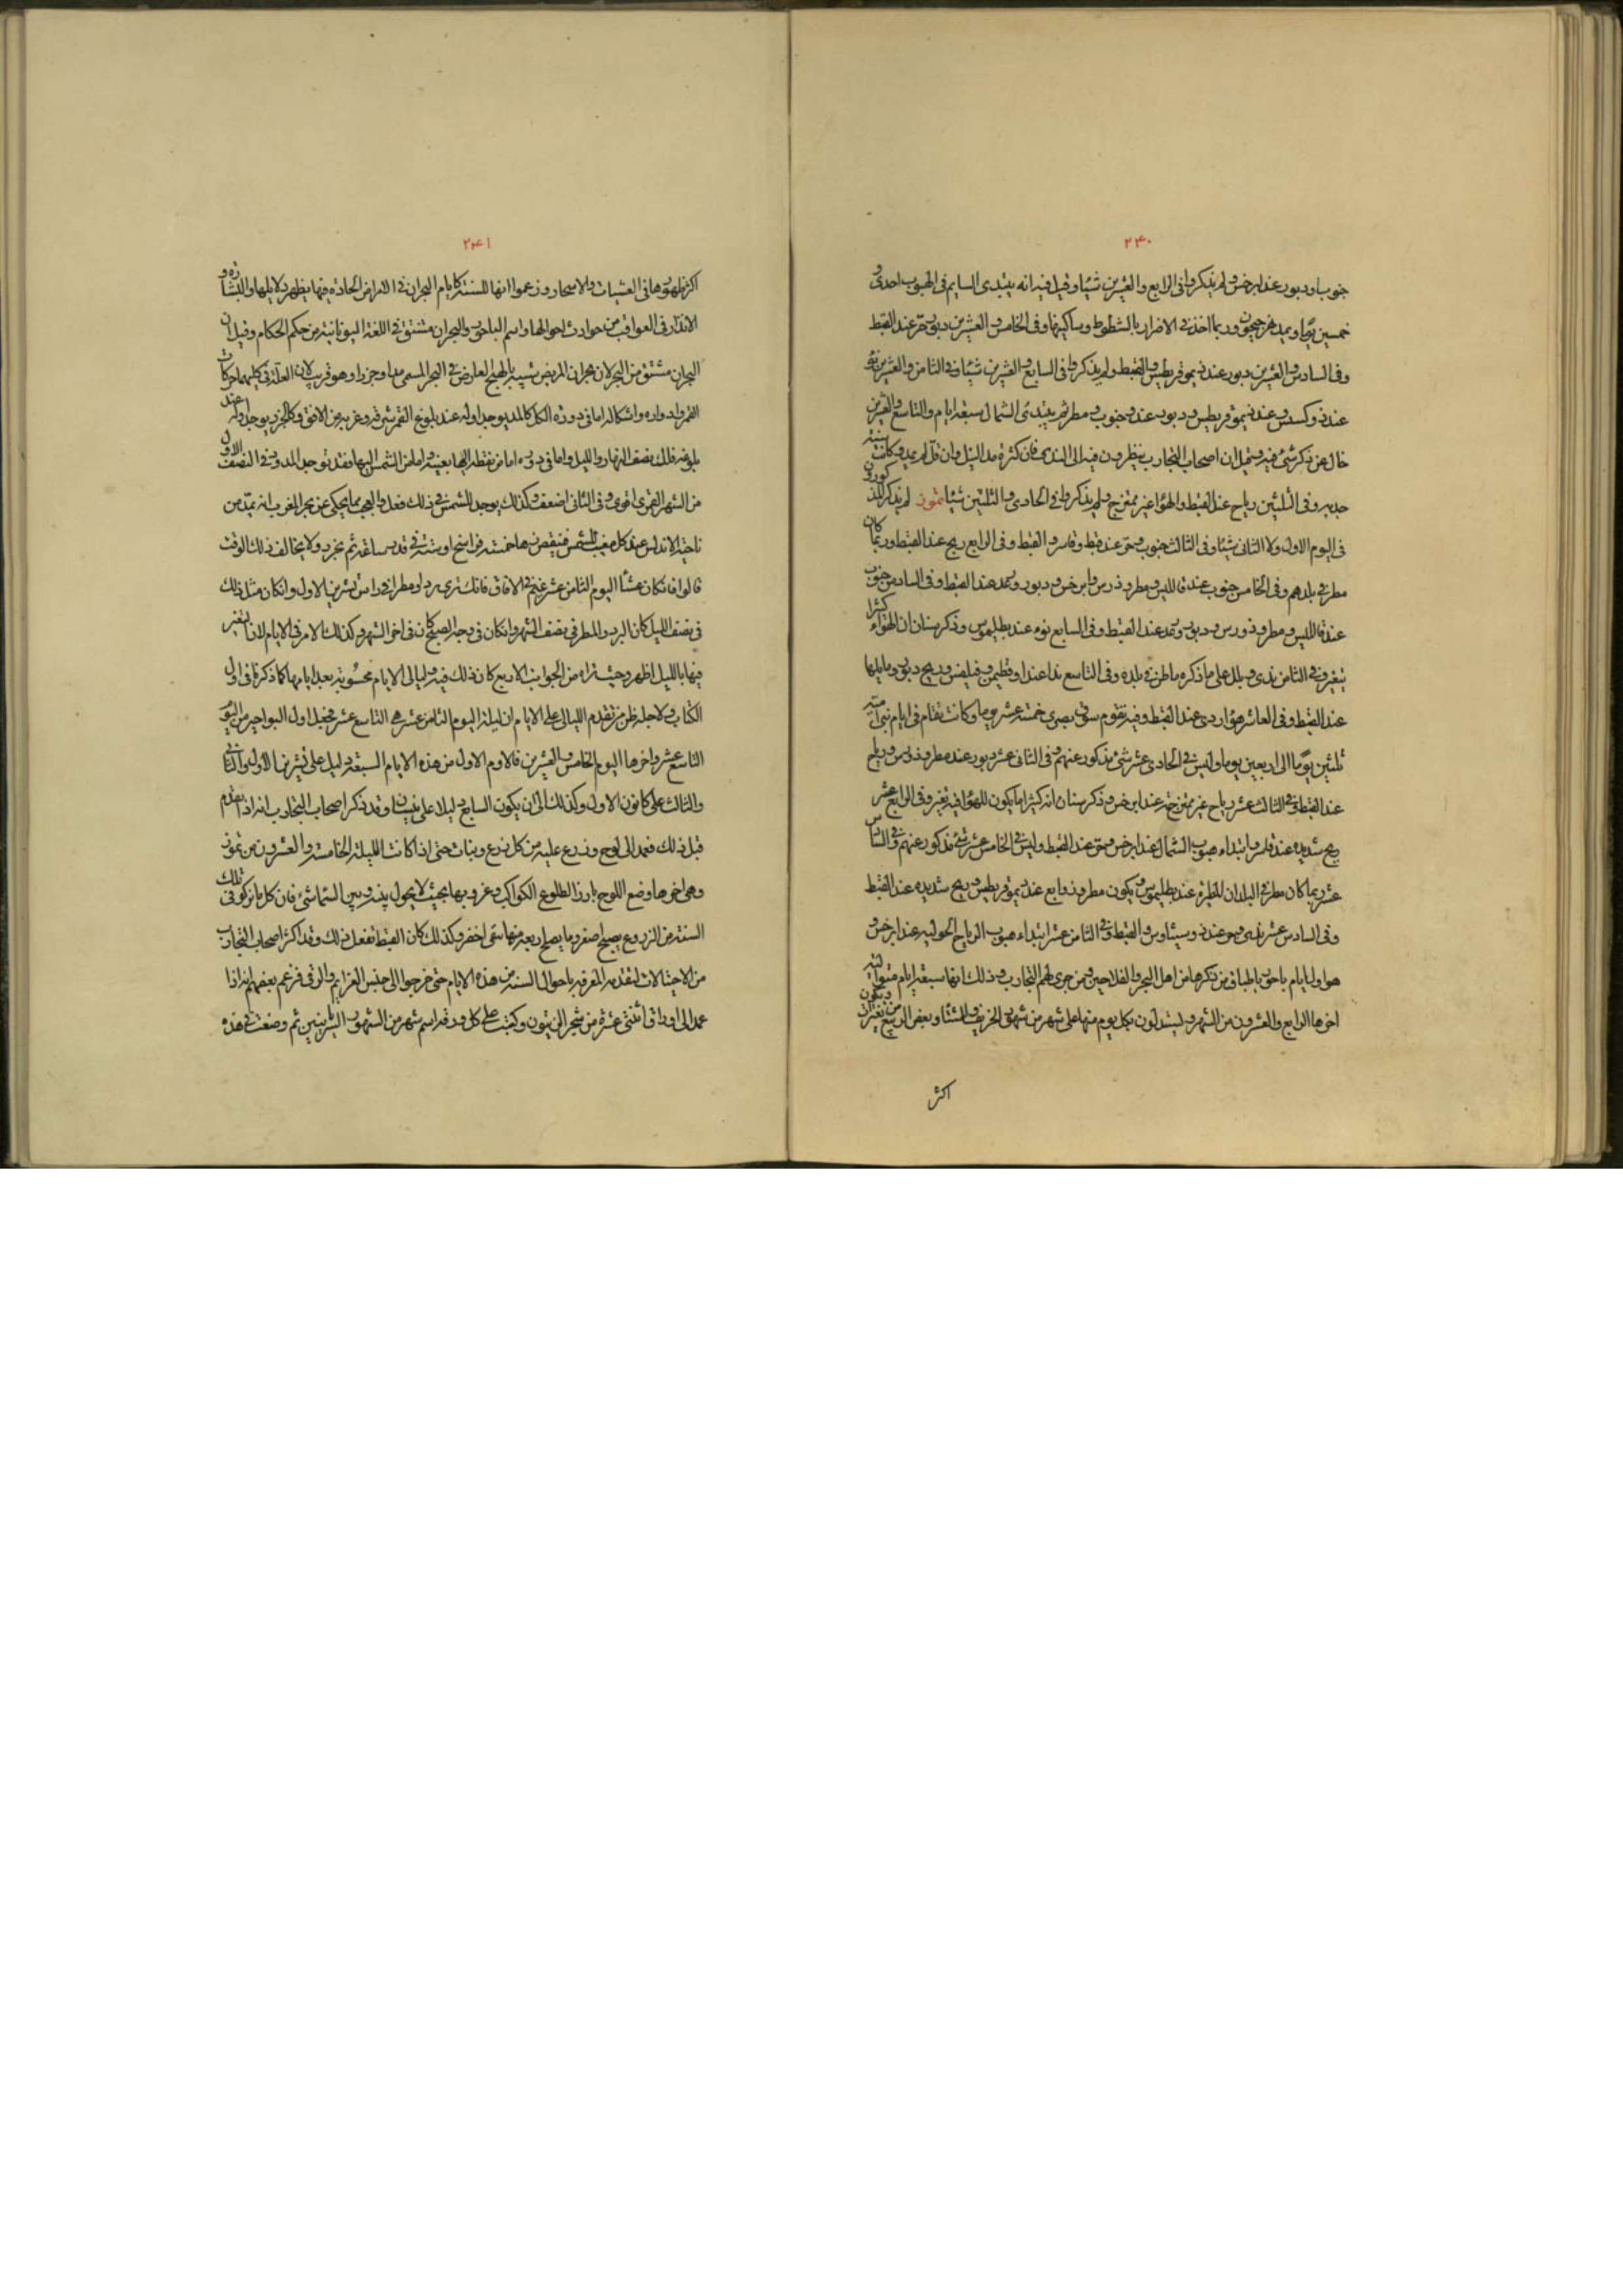 ٢٤٠
جنوب او دبور عند ابرخس ولم يذكروا فى الرابع والعشرين شيئا وقيل فيه انه يبتدى السمايم فى الهبوب احدى و
خمسين يوما ويمد نهر جيحون وربما اخذ فى الاضرار بالشطوط وساكنيها وفى الخامس والعشرين دبور وحر عند القبط
وفى السادس والعشرين دبور عند ذيموقريطس والقبط ولم يذكروا فى السابع والعشرين شيئا وفى الثامن والعشرين نو
عند ذوكسس وعند ذيموقريطس ودبور عنده جنوب ومطر ثم يبتدى الشمال سبعة ايام والتاسع والعشرين
خال عن ذكر شئ فيه وقيل ان اصحاب التجارب ينظرون فيه الى الندى فان كثر مد النيل وان قل لم يمد وكانت سنة
جدبه وفى الثلثين رياح عند القبط والهوا غير ممتزج ولم يذكروا فى الحادى والثلثين شيئا تموز لم يذكر المذكورون
فى اليوم الاول ولا الثانى شيئا وفى الثالث جنوب وحر عند قبط وقاسر والقبط وفى الرابع ريح عند القبط وربما كان
مطر فى بلدهم وفى الخامس جنوب عند قاللبس ومطروذرس وابرخس ودبور ورعد عند القبط وفى السادس جنوب
عند قاللبس ومطروذورس ودبور ورعد عند القبط وفى السابع نوء عند بطليموس وذكر سنان ان الهواء كثيرا
يتغير وفى الثامن ندى وبلل على ما ذكره ماطن فى بلده وفى التاسع ندا عند اوقطيمن وفيلفس وريح دبور وما يليها
عند القبط وفى العاشر هوا ردى عند القبط وفيه تقوم سوق بصرى خمسة عشر يوما وكانت تقام فى ايام بنى امية
ثلثين يوما الى اربعين يوما وليس فى الحادى عشر شئ مذكور عنهم وفى الثانى عشر دبور عند مطروذورس ورياح
عند القبط وفى الثالث عشر رياح غير ممتزجة عند ابرخس وذكر سنان انه كثيرا ما يكون للهوا فيه تغير وفى الرابع عشر
ريح شديده عند قلسر وابتداء هبوب الشمال عند ابرخس وحر عند القبط وليس فى الخامس عشر شئ مذكور عنهم وفى السادس
عشر ربما كان مطر فى البلدان المطيرة عند بطليموس ويكون مطر وزوابع عند ذيموقريطس وريح شديده عند القبط
وفى السادس عشر ندى وحر عند ذوسيثاوس والقبط وفى الثامن عشر ابتداء هبوب الرياح الحوليه عند ابرخس و
هو اول ايام باحور باطباق من ذكرها من اهل البحر والفلاحين ومن جرى لهم التجارب وذلك انها سبعة ايام متوالية
اخرها الرابع والعشرون من الشهر ويستدلون بكل يوم منها على شهر من شهور الخريف والشتا وبعض الربيع وتكون تغيرات
اكثر
٢٤١
اكثر ظهورها فى العشيات والاسحار وزعموا انها للسنة كايام البحران فى الامراض الحاده فيها يظهر دلايلها والبشارة و
الانذار فى العواقب من حوادث احوالها واسم الباحور والبحران مشتق فى اللغة اليونانية من حكم الحكام وقيل ان
البحران مشتق من البحر لان بحران المريض شبيه بالهيج العارض فى البحر المسمى مدا وجزرا وهو قريب لان العلة فى كليهما حركات
القمر وادواره واشكاله اما فى دوره الكل كالمد يوجد اوله عند بلوغ القمر شرقه وغربه من الافق وكالجزر يوجد اوله عند
بلوغه فلك نصف النهار والليل واما فى دوره اما من نقطه اليها بعينها واما من الشمس اليها وقد توجد المدود فى النصف الاول
من الشهر القمرى اقوى وفى الثانى اضعف وكذلك يوجد للشمس فى ذلك فعل والعجب مما يحكى عن بحر المغرب انه يمد من
ناحية الاندلس عند كل مغيب للشمس فينقص منها خمسة فراسخ او ستة فى قدر ساعة ثم يجزر ولا يخالف ذلك الوقت
قالوا فان كان عشا اليوم الثامن عشر غيم فى الافاق فانك ترى بردا ومطرا فى راس تشرين الاول وان كان مثل ذلك
فى نصف الليل كان البرد والمطر فى نصف الشهر وان كان فى وجه الصبح كان فى اخر الشهر وكذلك الامر فى الايام لان التغير
فيها بالليل اظهر وحيث تراه من الجوانب الاربع كان ذلك فيه وليالى الايام محسوبة بعد ايامها كما ذكرنا فى اول
الكتاب ولاجله ظن من تقدم الليالى على الايام ان ليلة اليوم الثامن عشر هى التاسع عشر فجعل اول البواحير من اليوم
التاسع عشر واخرها اليوم الخامس والعشرين فالاوم الاول من هذه الايام السبعة دليل على تشرين الاول والثانى
والثالث على كانون الاول وكذلك الى ان يكون السابع دليلا على نيسان وقد ذكر اصحاب التجارب انه اذا تقدم
قبل ذلك فعمد الى لوح وزرع عليه من كل زرع ونبات حتى اذا كانت الليلة الخامسة والعشرون من تموز
وهى اخرها وضع اللوح بارزا لطلوع الكواكب وغروبها بحيث لا يحول بينه وبين السما شئ فان كل ما يزكو فى تلك
السنة من الزروع يصبح اصفر وما يصلح ريعه منها يبقى اخضر وكذلك كان القبط تفعل ذلك وقد اكثر اصحاب التجارب
من الاحتيالات لتقدمة المعرفة باحوال السنة من هذه الايام حتى خرجوا الى جنس العزايم والرقى فزعم بعضهم انه اذا
عمد الى اوراق اثنتى عشرة من شجر الزيتون وكتبت على كل ورقة اسم شهر من الشهور السريانيين ثم وضعت فى هذه